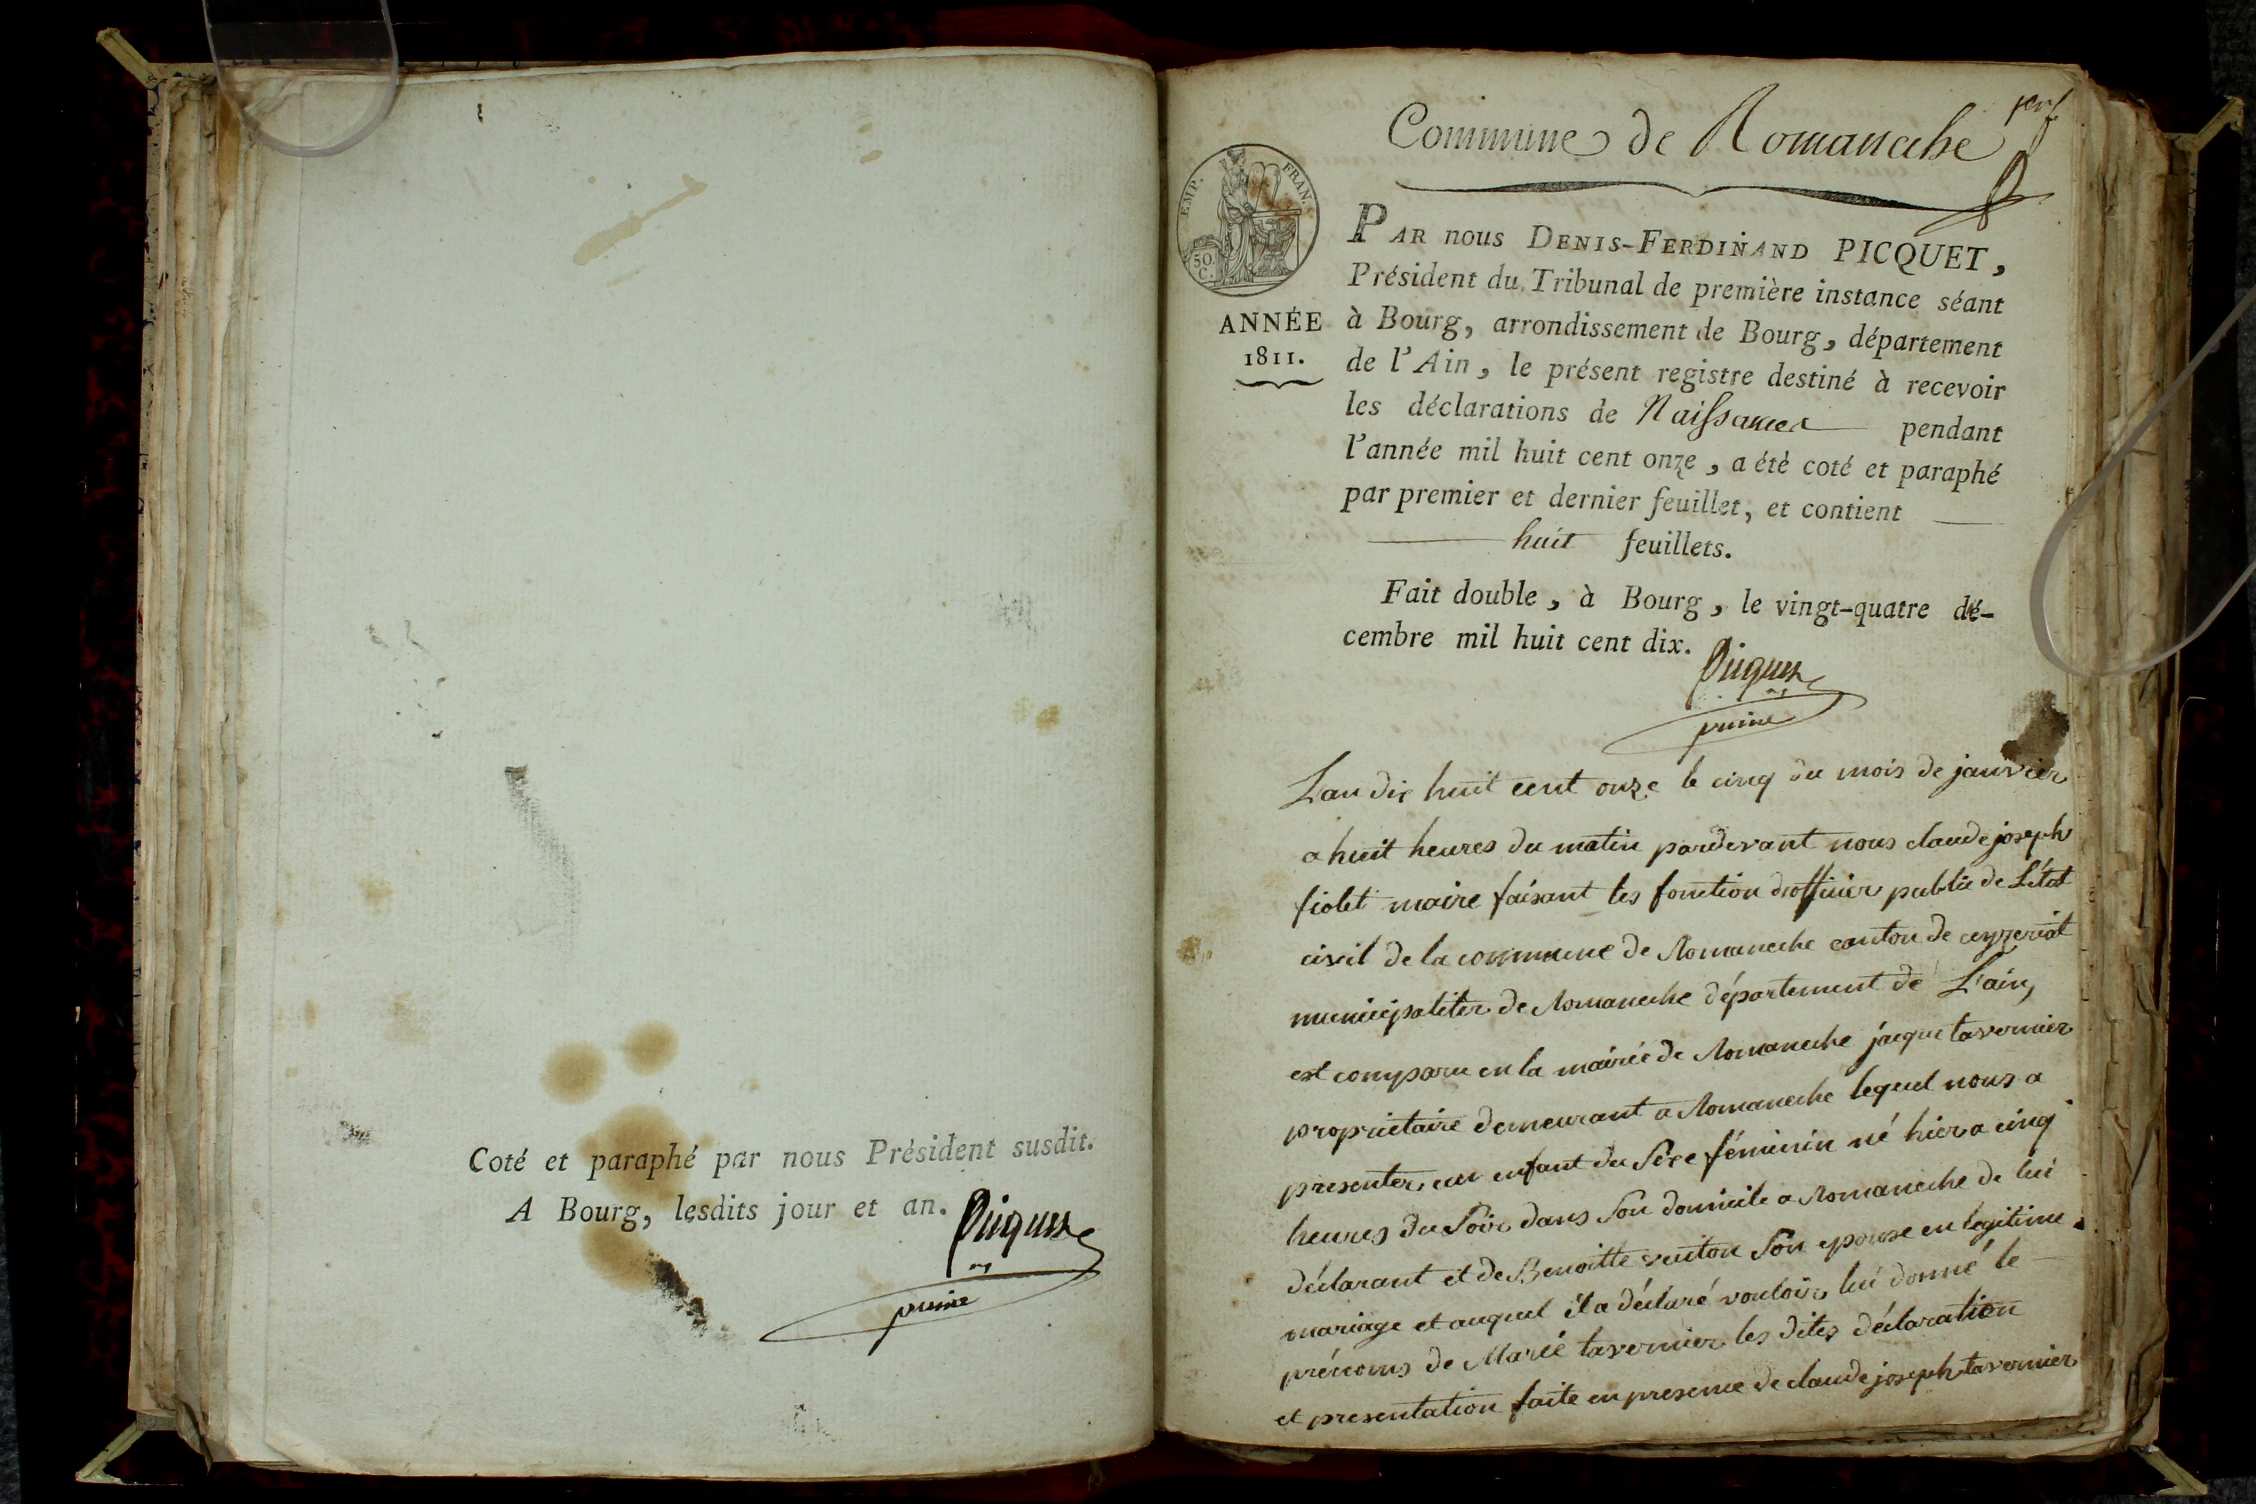 Coté et paraphé par nous Président susdit.
A Bourg, lesdits jour et an.
Picquet
Commune de Romaneche
EMP. FRAN.
50.
C.
ANNÉE
1811.
PAR nous DENIS-FERDINAND PICQUET,
Président du Tribunal de première instance séant
à Bourg, arrondissement de Bourg, département
de l'Ain, le présent registre destiné à recevoir
les déclarations de Naissances pendant
l'année mil huit cent onze, a été coté et paraphé
par premier et dernier feuillet, et contient
huit feuillets.
Fait double, à Bourg, le vingt-quatre dé-
cembre mil huit cent dix.
Picquet
L'an dix huit cent onze le cinq du mois de janvier
a huit heures du matin pardevant nous claude joseph
fiolet maire faisant les fonction d'officier public de L'état
civil de la commune de Romaneche canton de ceyzeriat
municipaliter de Romaneche département de L'ain,
est comparu en la mairie de Romaneche jacque tavernier
proprietaire demeurant a Romaneche lequel nous a
presenter un enfant du Sexe féminin né hier a cinq
heures du Soir dans Son domicile a Romaneche de lui
déclarant et de Benoitte vuiton Son epouse en légitime
mariage et auquel il a déclaré vouloir lui donné le
prénoms de Marie tavernier les dites déclaration
et presentation faite en presence de claude joseph tavernier